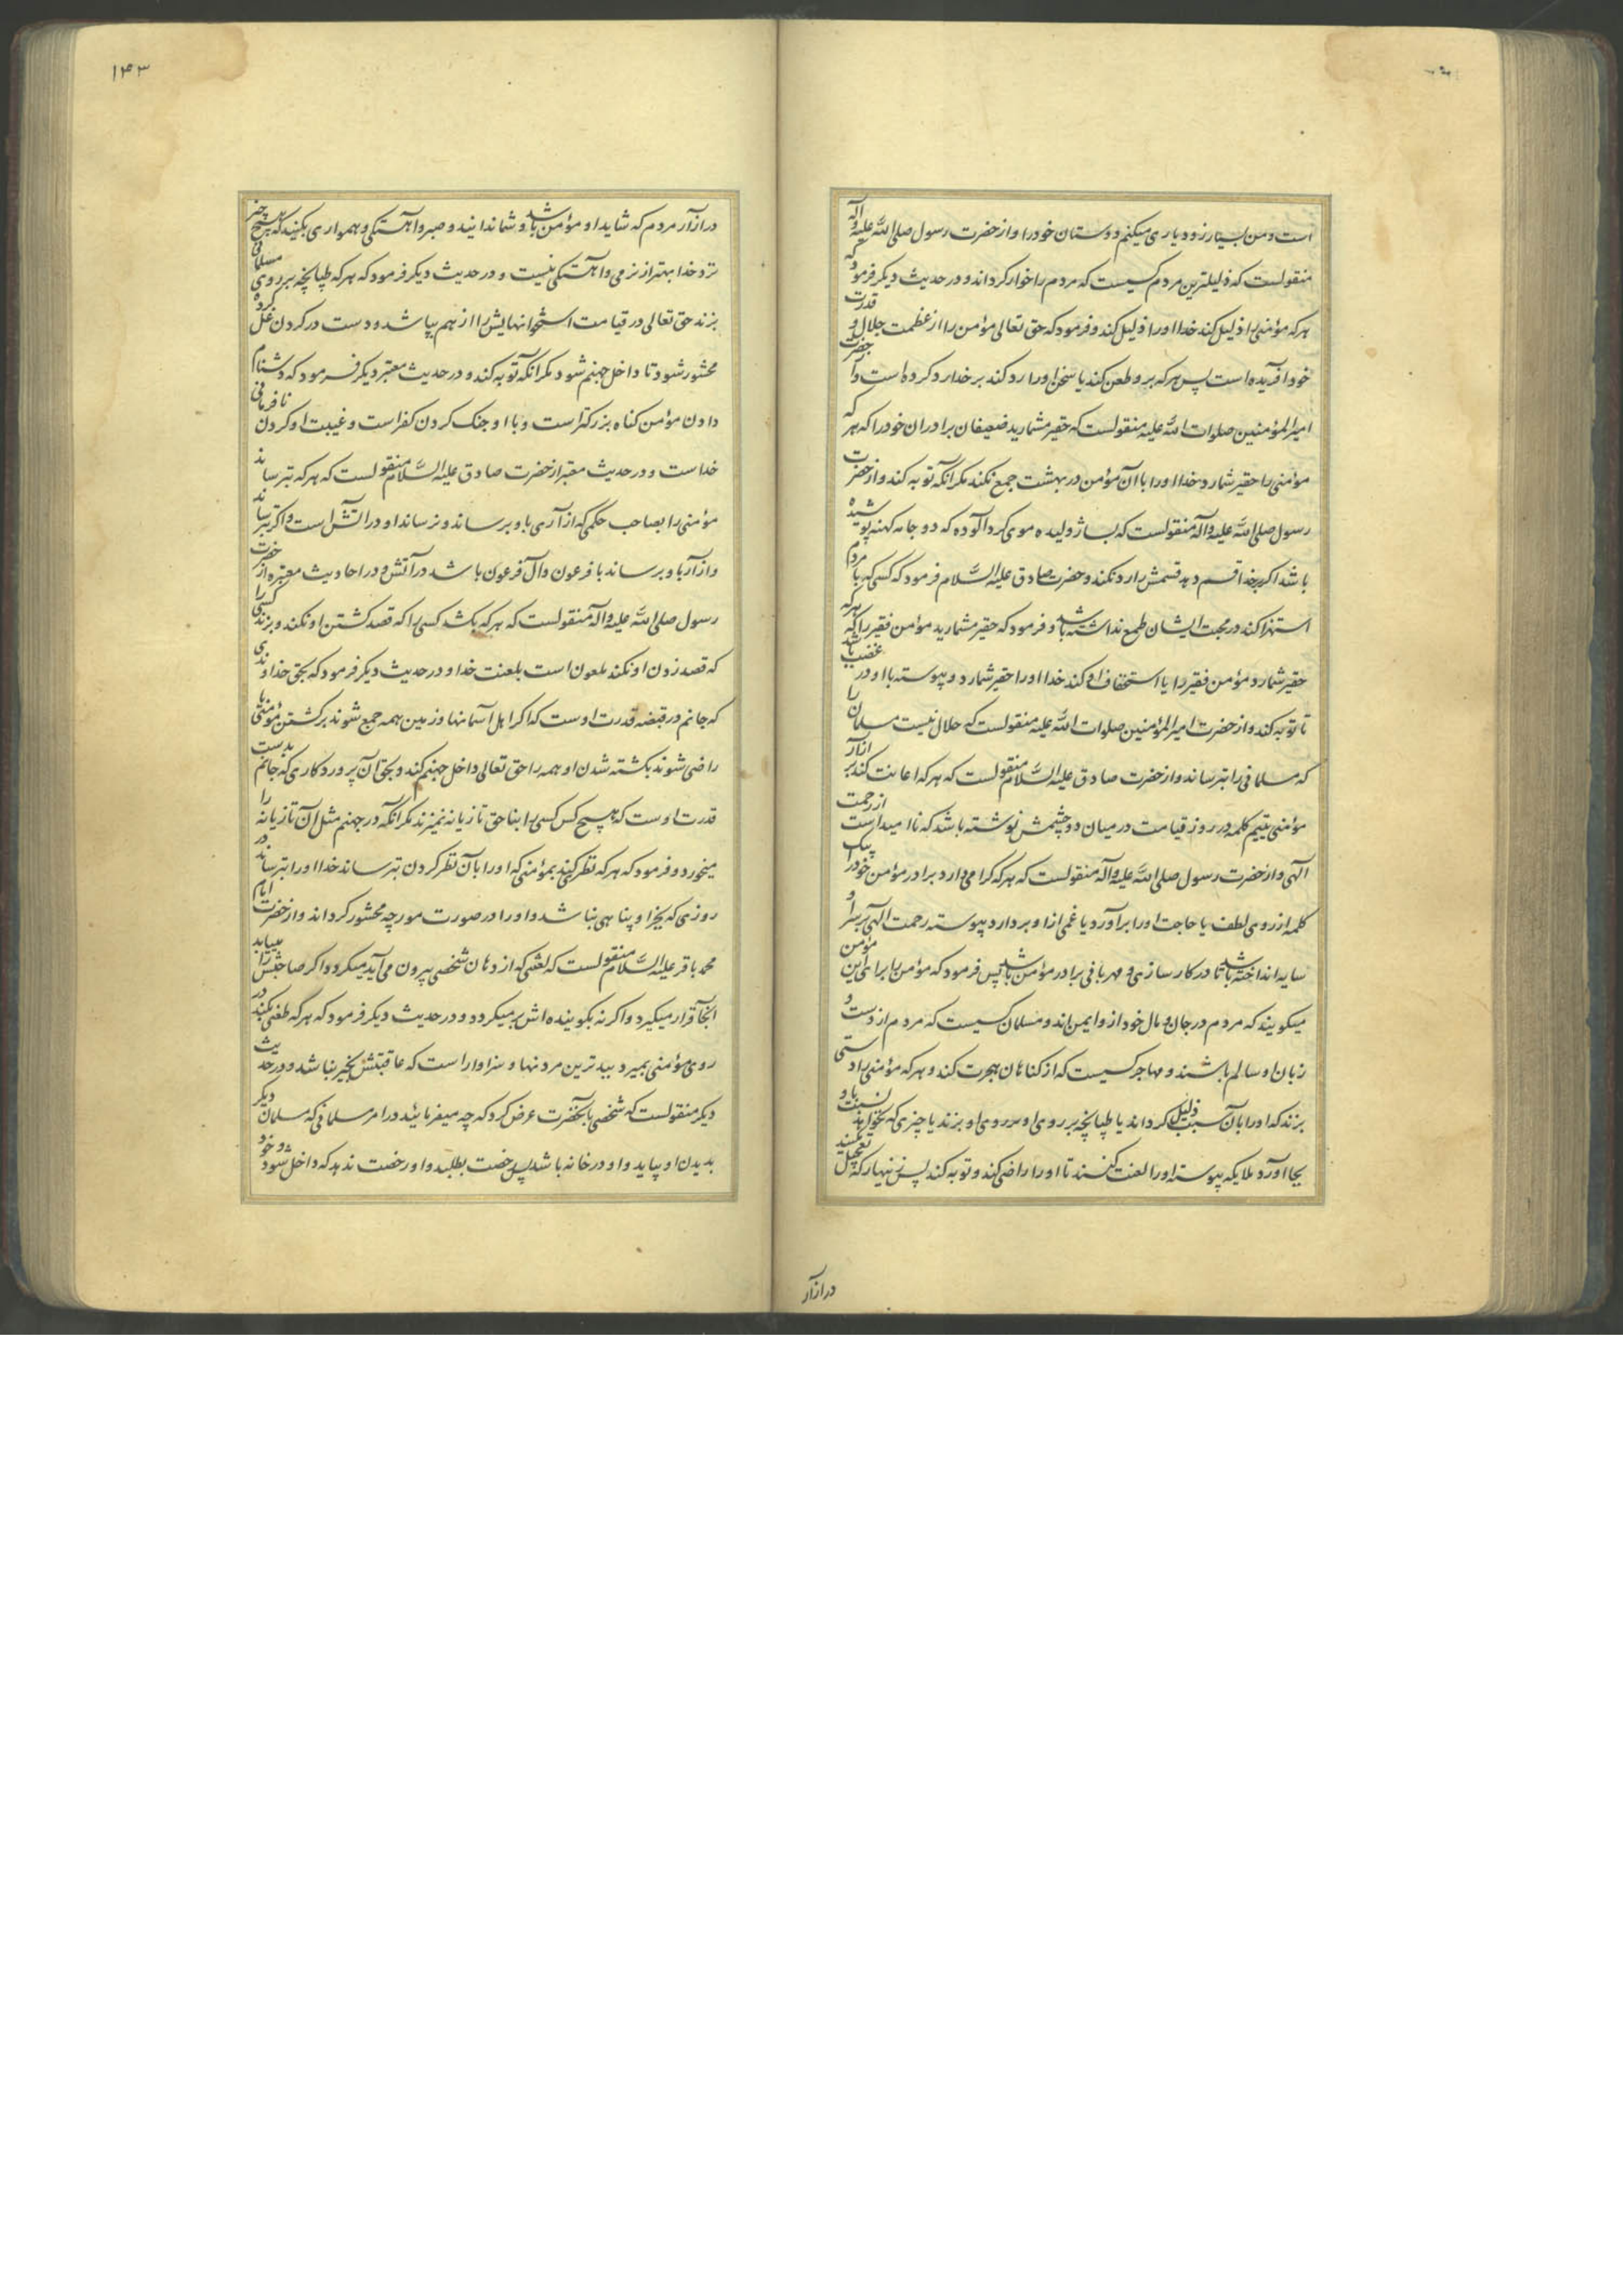 است و من بسیار زود یاری میکنم دوستان خود را و از حضرت رسول صلی الله علیه و آله
منقولست که ذلیلترین مردم کسیست که مردم را خوار کرداند و در حدیث دیکر فرمود که
هر که مؤمنی را ذلیل کند خدا او را ذلیل کند و فرمود که حق تعالی مؤمن را از عظمت جلال و قدرت
خود آفریده است پس هر که بر و طعن کند یا سخن او را رد کند بر خدا رد کرده است و از حضرت
امیر المؤمنین صلوات الله علیه منقولست که حقیر مشمارید ضعیفان برادران خود را که هر که
مؤمنی را حقیر شمارد خدا او را با آن مؤمن در بهشت جمع نکند مکر آنکه توبه کند و از حضرت
رسول صلی الله علیه و آله منقولست که بسا ژولیده موی کرد آلوده که دو جامه کهنه پوشیده
باشد اکر بخدا قسم دهد قسمش را رد نکند و حضرت صادق علیه السلام فرمود که کسی که با مردم
استهزا کند در محبت ایشان طمع نداشته باشد و فرمود که حقیر مشمارید مؤمن فقیر را که هر که
حقیر شمارد مؤمن فقیر را یا استخفاف او کند خدا او را حقیر شمارد و پیوسته با او در غضب باشد
تا توبه کند و از حضرت امیر المؤمنین صلوات الله علیه منقولست که حلال نیست مسلمان را
که مسلمانی را بترساند و از حضرت صادق علیه السلام منقولست که هر که اعانت کند بر آزار
مؤمنی بنیم کلمه در روز قیامت در میان دو چشمش نوشته باشد که نا امید است از رحمت
الهی و از حضرت رسول صلی الله علیه و آله منقولست که هر که کرامی دارد برادر مؤمن خود را بیک
کلمه از روی لطف یا حاجت او را برآورد یا غمی از او بردارد پیوسته رحمت الهی بر سر او
سایه انداخته باشد تا در کار سازی و مهربانی برادر مؤمن باشد پس فرمود که مؤمن را برای این مؤمن
میکویند که مردم در جان و مال خود از و ایمن اند و مسلمان کسیست که مردم از دست و
زبان او سالم باشند و مهاجر کسیست که از کناهان هجرت کند و هر که مؤمنی را دستی
بزند که او را بآن سبب ذلیل کرداند یا طپانچه بر روی او بزند یا چیزی که نخواهد نسبت باو
بجا آورد ملایکه پیوسته او را لعنت کنند تا او را راضی کند و توبه کند پس زنهار که تعجیل مکنید
در ازار
۱۴۳
در آزار مردم که شاید او مؤمن باشد و شما ندانید و صبر و آهستکی و همواری بکنید که هیچ چیز
نزد خدا بهتر از نرمی و آهستکی نیست و در حدیث دیکر فرمود که هر که طپانچه بر روی مسلمانی
بزند حق تعالی در قیامت استخوانهایش را از هم بپاشد و دست در کردن غل کرده
محشور شود تا داخل جهنم شود مکر آنکه توبه کند و در حدیث معتبر دیکر فرمود که دشنام
دادن مؤمن کناه بزرکتر است و با او جنک کردن کفر است و غیبت او کردن نافرمانی
خداست و در حدیث معتبر از حضرت صادق علیه السلام منقولست که هر که بترساند
مؤمنی را بصاحب حکمی که از آری باو برساند و نرساند او در آتش است و اکر بترساند
و از آر باو برساند با فرعون و آل فرعون باشد در آتش و در احادیث معتبره از حضرت
رسول صلی الله علیه و آله منقولست که هر که بکشد کسی را که قصد کشتن او نکند و بزند کسی را
که قصد زدن او نکند ملعون است بلعنت خدا و در حدیث دیکر فرمود که بحق خداوندی
که جانم در قبضه قدرت اوست که اکر اهل آسمانها و زمین همه جمع شوند بر کشتن مؤمنی یا
راضی شوند بکشته شدن او همه را حق تعالی داخل جهنم کند و بحق آن پروردکاری که جانم بدست
قدرت اوست که هیچ کس کسی را بناحق تازیانه نمیزند مکر آنکه در جهنم مثل آن تازیانه را
میخورد و فرمود که هر که نظر کند بمؤمنی که او را بآن نظر کردن بترساند خدا او را بترساند در
روزی که بجز او پناهی نباشد و او را در صورت مورچه محشور کرداند و از حضرت امام
محمد باقر علیه السلام منقولست که لعنتی که از دهان شخصی بیرون می آید میکردد اکر صاحبش را بیابد
آنجا قرار میکیرد و اکر نه بکوینده اش بر میکردد و در حدیث دیکر فرمود که هر که طعنی بکند در
روی مؤمنی بمیرد ببدترین مردنها و سزاوار است که عاقبتش بخیر نباشد و در حدیث
دیکر منقولست که شخصی بآنحضرت عرض کرد که چه میفرمائید در امر مسلمانی که مسلمان دیکر
بدیدن او بیاید و او در خانه باشد پس رخصت بطلبد و او رخصت ندهد که داخل شود و خود